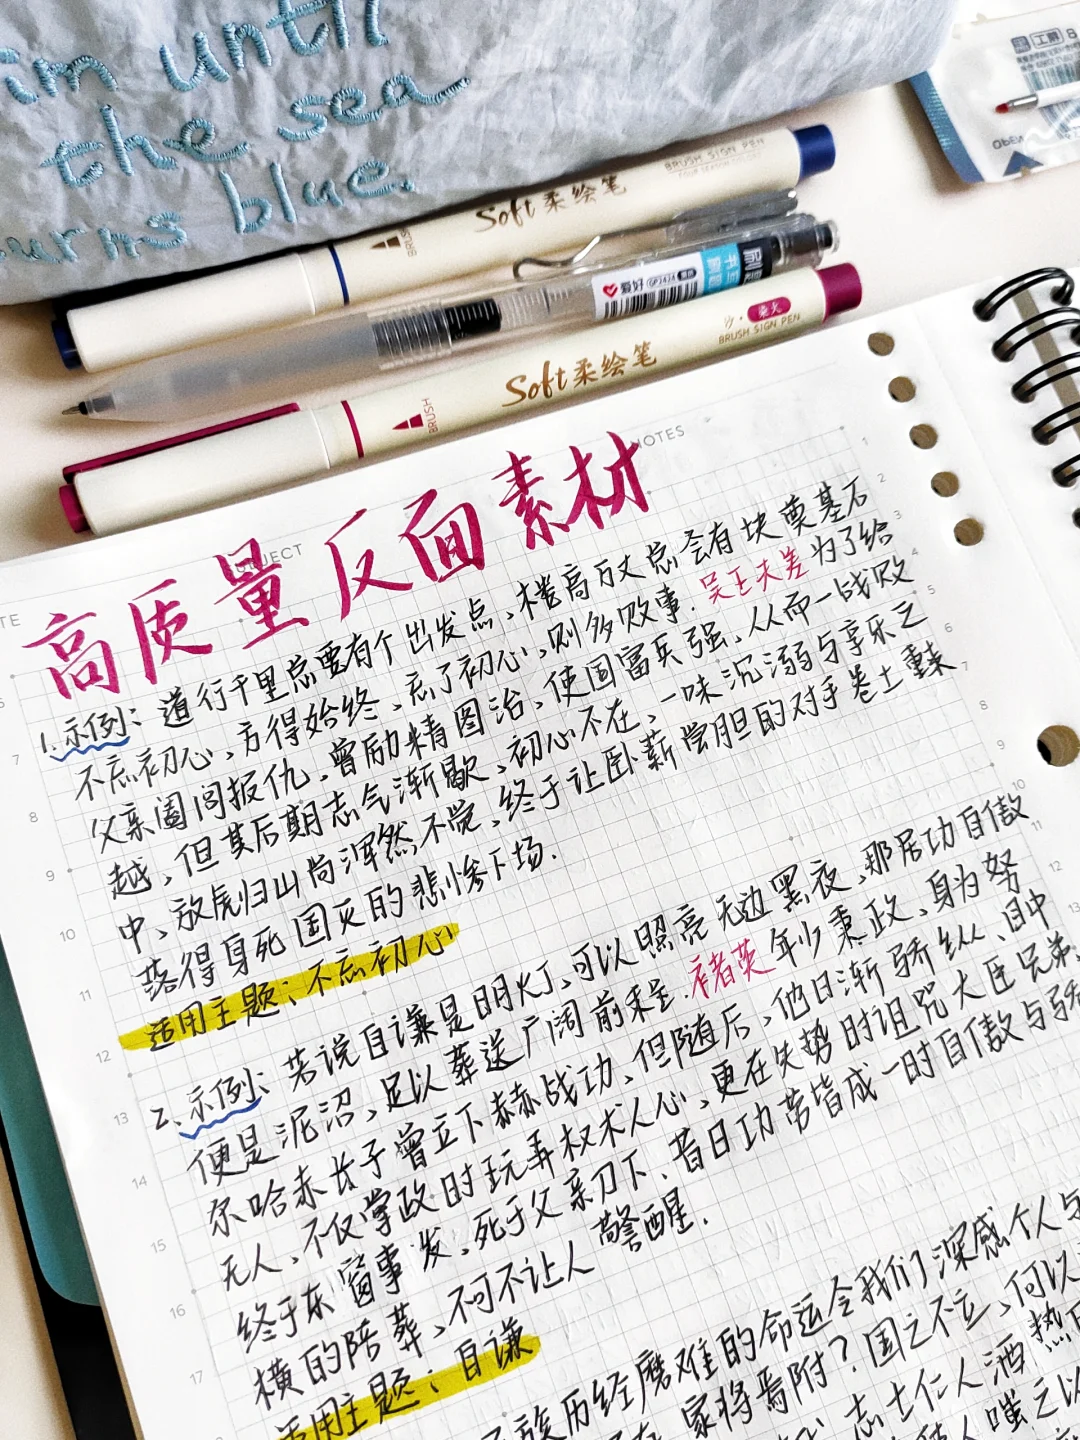 im until
the sea
urns blue.
BRUSH SIGN PEN
Soft柔绘笔
Soft柔绘笔
BRUSH SIGN PEN
BRUSH
NOTES
高质量反面素材
1.示例：道行千里总要有个出发点、楼高万丈总会有块奠基石
不忘初心、方得始终，忘了初心，则多败事.吴王夫差为了给
父亲阖闾报仇、曾励精图治，使国富兵强、从而一战败
越，但其后期志气渐歇、初心不在，一味沉溺与享乐之
中、放虎归山尚浑然不觉，终于让卧薪尝胆的对手卷土重来
落得身死国灭的悲惨下场.
适用主题：不忘初心
2.示例：若说自谦是明灯，可以照亮无边黑夜、那居功自傲
便是泥沼，足以葬送广阔前程.褚英年少秉政、身为努
尔哈赤长子曾立下赫赫战功、但随后，他日渐骄纵、目中
无人、不仅掌政时玩弄权术人心，更在失势时诅咒大臣兄弟、
终于东窗事发，死于父亲刀下、昔日功劳皆成一时自傲与骄
横的陪葬、不可不让人警醒.
适用主题：自谦
族历经磨难的命运令我们深感个人与
家将焉附？国之不立，何以
志士仁人洒热
嗤之以